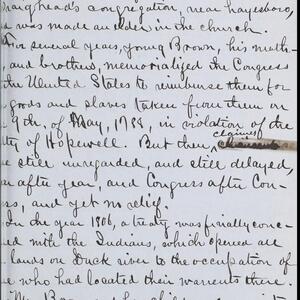 Craighead's congregation, near Hayesboro,
was made an elder in the church.
For several years, young Brown, his moth-
and brothers, memorialized the Congress
the United States to reimburse them for
goods and slaves taken from them on
9th. of May, 1788, in violation of the
claims
ty of Hopewell. But their
still unregarded, and still delayed,
after year, and Congress after Con-
ess, and yet no relief.
In the year 1806, a treaty was finally conc-
ed with the Indians, which opened
lands on Duck river to the occupation of
e who had located their warrents there.